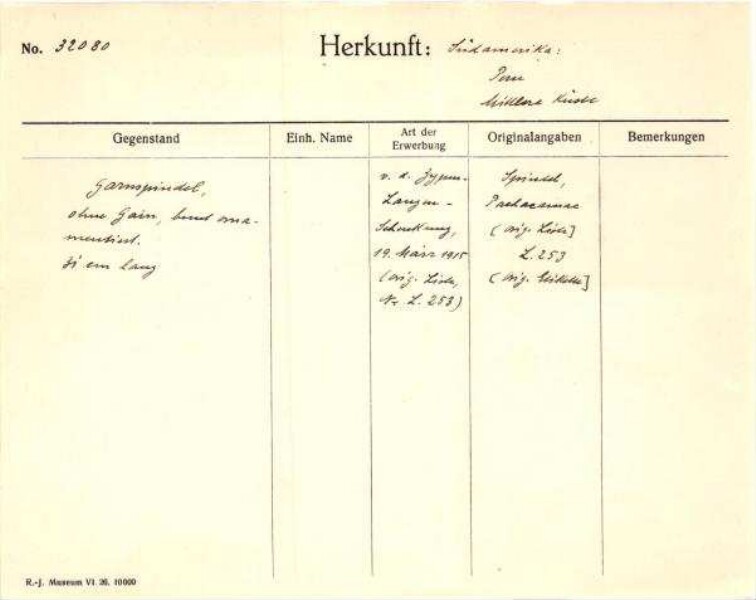 No. 32080
Herkunft: Südamerika:
Peru
Mittlere Küste
Gegenstand
Einh. Name
Art der
Erwerbung
Originalangaben
Bemerkungen
Garnspindel,
ohne Garn, bunt orna-
mentiert.
cm lang
v. d. Zypen-
Langen-
Schenkung,
19. März 1915
(orig. Liste,
Nr L. 253)
Spindel,
Pachacamac
(orig. Liste]
L. 253
(orig. Etikette]
R.-J. Museum VI. 26. 10000